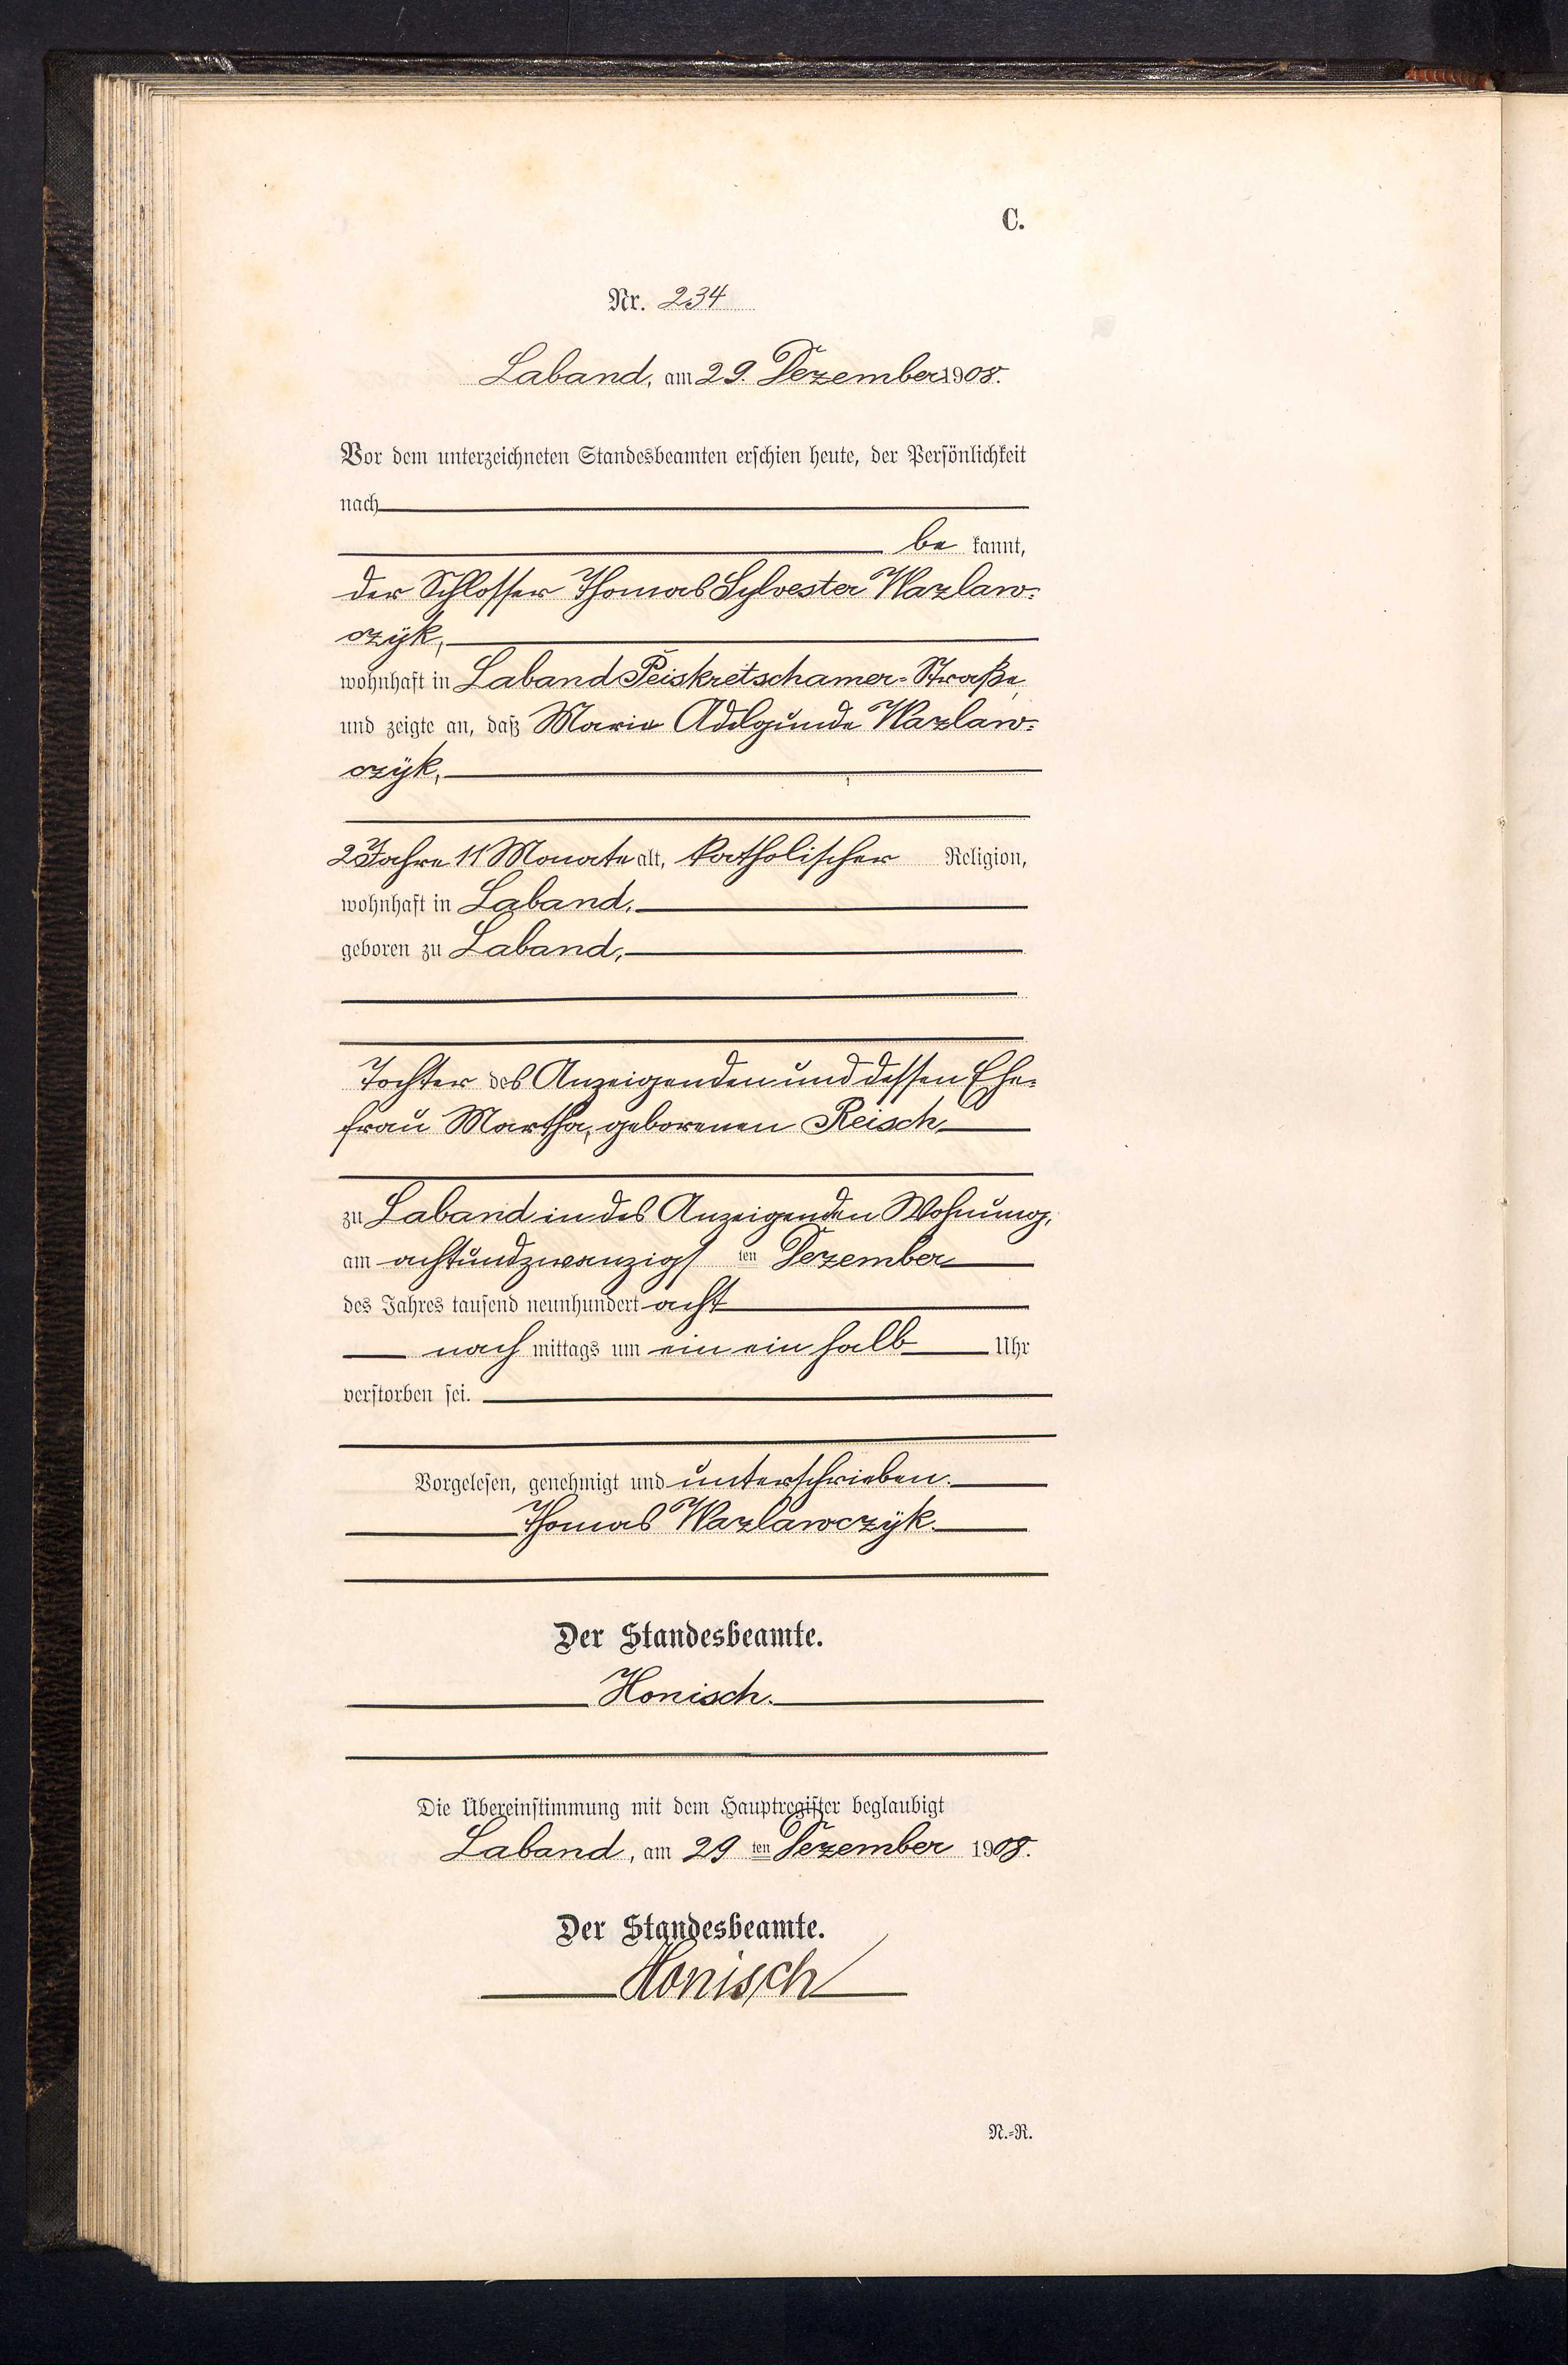 C.
Nr. 234
Laband, am 29. Dezember 1908.
Vor dem unterzeichneten Standesbeamten erschien heute, der Persönlichkeit
nach
be kannt,
der Schlosser Thomas Sylvester Wazlaw-
czyk,
wohnhaft in Laband Peiskretschamer-Straße
und zeigte an, daß Maria Adelgunde Wazlaw-
czyk,
2 Jahre 11 Monate alt, katholischer Religion,
wohnhaft in Laband,
geboren zu Laband,
Tochter des Anzeigenden und dessen Ehe-
frau Martha, geborenen Reisch,
zu Laband in des Anzeigenden Wohnung,
am achtundzwanzigsten Dezember
des Jahres tausend neunhundert acht
nach mittags um ein ein halb Uhr
verstorben sei.
Vorgelesen, genehmigt und unterschrieben.
Thomas Wazlawczyk.
Der Standesbeamte.
Honisch.
Die Übereinstimmung mit dem Hauptregister beglaubigt
Laband, am 29 ten Dezember 1908.
Der Standesbeamte.
Honisch
N.-R.